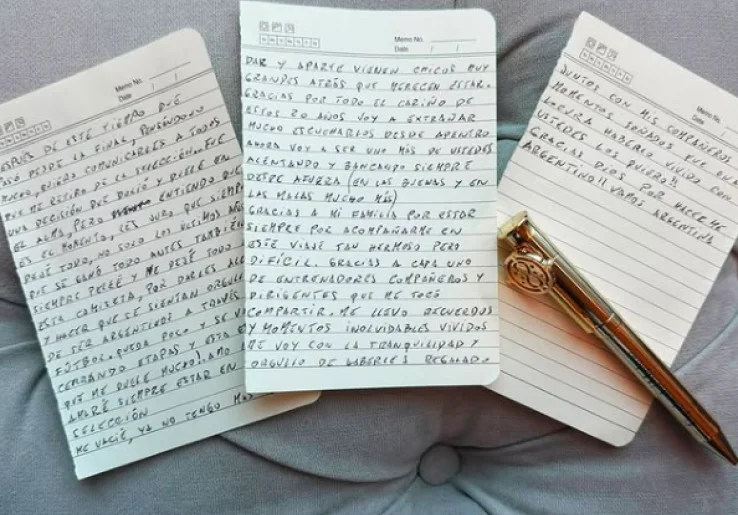 Memo No.
Date / /
DESPUES DE ESTE TIEMPO QUE
PASÓ DESDE LA FINAL, PENSÁNDOLO
MUCHO, QUIERO COMUNICARLES A TODOS
QUE ME RETIRO DE LA SELECCIÓN. FUE
UNA DECISIÓN QUE DOLIÓ Y DUELE EN
EL ALMA, PERO ENTIENDO QUE
ES EL MOMENTO, LES JURO QUE SIEMPRE
DEJÉ TODO, NO SOLO LOS ÚLTIMOS AÑOS
QUE SE GANÓ TODO ANTES TAMBIÉN
SIEMPRE PELEÉ Y ME DEJÉ TODO
ESTA CAMISETA, POR DARLES
Y HACER QUE SE SIENTAN
DE SER ARGENTINOS A TRAVÉS
FÚTBOL. QUEDA POCO Y SE
CERRANDO ETAPAS Y ESTA
QUE ME DUELE MUCHO! AMO
AMARÉ SIEMPRE ESTAR EN
SELECCIÓN
ME VACIÉ, YA NO TENGO MÁS
Memo No.
Date / /
DAR Y APARTE VIENEN CHICOS MUY
GRANDES ATRÁS QUE MERECEN ESTAR.
GRACIAS POR TODO EL CARIÑO DE
ESTOS 20 AÑOS VOY A EXTRAÑAR
MUCHO ESCUCHARLOS DESDE ADENTRO
AHORA VOY A SER UNO MÁS DE USTEDES
ALENTANDO Y BANCANDO SIEMPRE
DESDE AFUERA (EN LAS BUENAS Y EN
LAS MALAS MUCHO MÁS)
GRACIAS A MI FAMILIA POR ESTAR
SIEMPRE POR ACOMPAÑARME EN
ESTE VIAJE TAN HERMOSO PERO
DIFÍCIL. GRACIAS A CADA UNO
DE ENTRENADORES COMPAÑEROS Y
DIRIGENTES QUE ME TOCÓ
COMPARTIR. ME LLEVO RECUERDOS
Y MOMENTOS INOLVIDABLES VIVIDOS
ME VOY CON LA TRANQUILIDAD Y
ORGULLO DE HABERLES REGALADO
Memo No.
Date / /
JUNTOS CON MIS COMPAÑEROS
MOMENTOS SOÑADOS FUE UNA
LOCURA HABERLO VIVIDO CON
USTEDES LOS QUIERO!!
GRACIAS DIOS POR HACERME
ARGENTINO!! VAMOS ARGENTINA